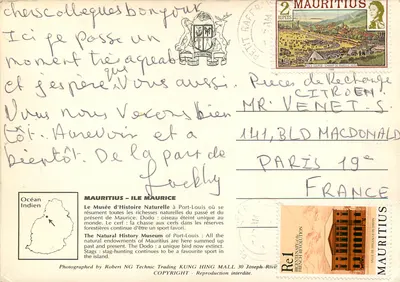 chers collegues bonjour
Ici je passe un
moment très agreable
et j'espère qui Vous aussi.
Vous nous Verons bien
tôt. Aurevoir et a
bientôt. De la part de
Pièces de Rechange
CITROËN.
MR. VENET. S.
141, BLD MACDONALD
PARIS 19e
FRANCE
2
MAURITIUS
Océan
Indien
MAURITIUS – ILE MAURICE
Le Musée d'Histoire Naturelle à Port-Louis où se
résument toutes les richesses naturelles du passé et du
présent de Maurice. Dodo : oiseau éteint unique au
monde. La chasse aux cerfs dans les réserves
forestières continue d'être un sport favori.
The Natural History Museum of Port-Louis : All the
natural endowments of Mauritius are here summed up
past and present. The Dodo : a unique bird now extinct.
Stags : stag-hunting continues to be a favourite sport in
the island.
Photographed by Robert NG Techno Trading KUNG HING MALL 39 Joseph-Rivié
COPYRIGHT - Reproduction interdite.
Rc1
MAURITIUS